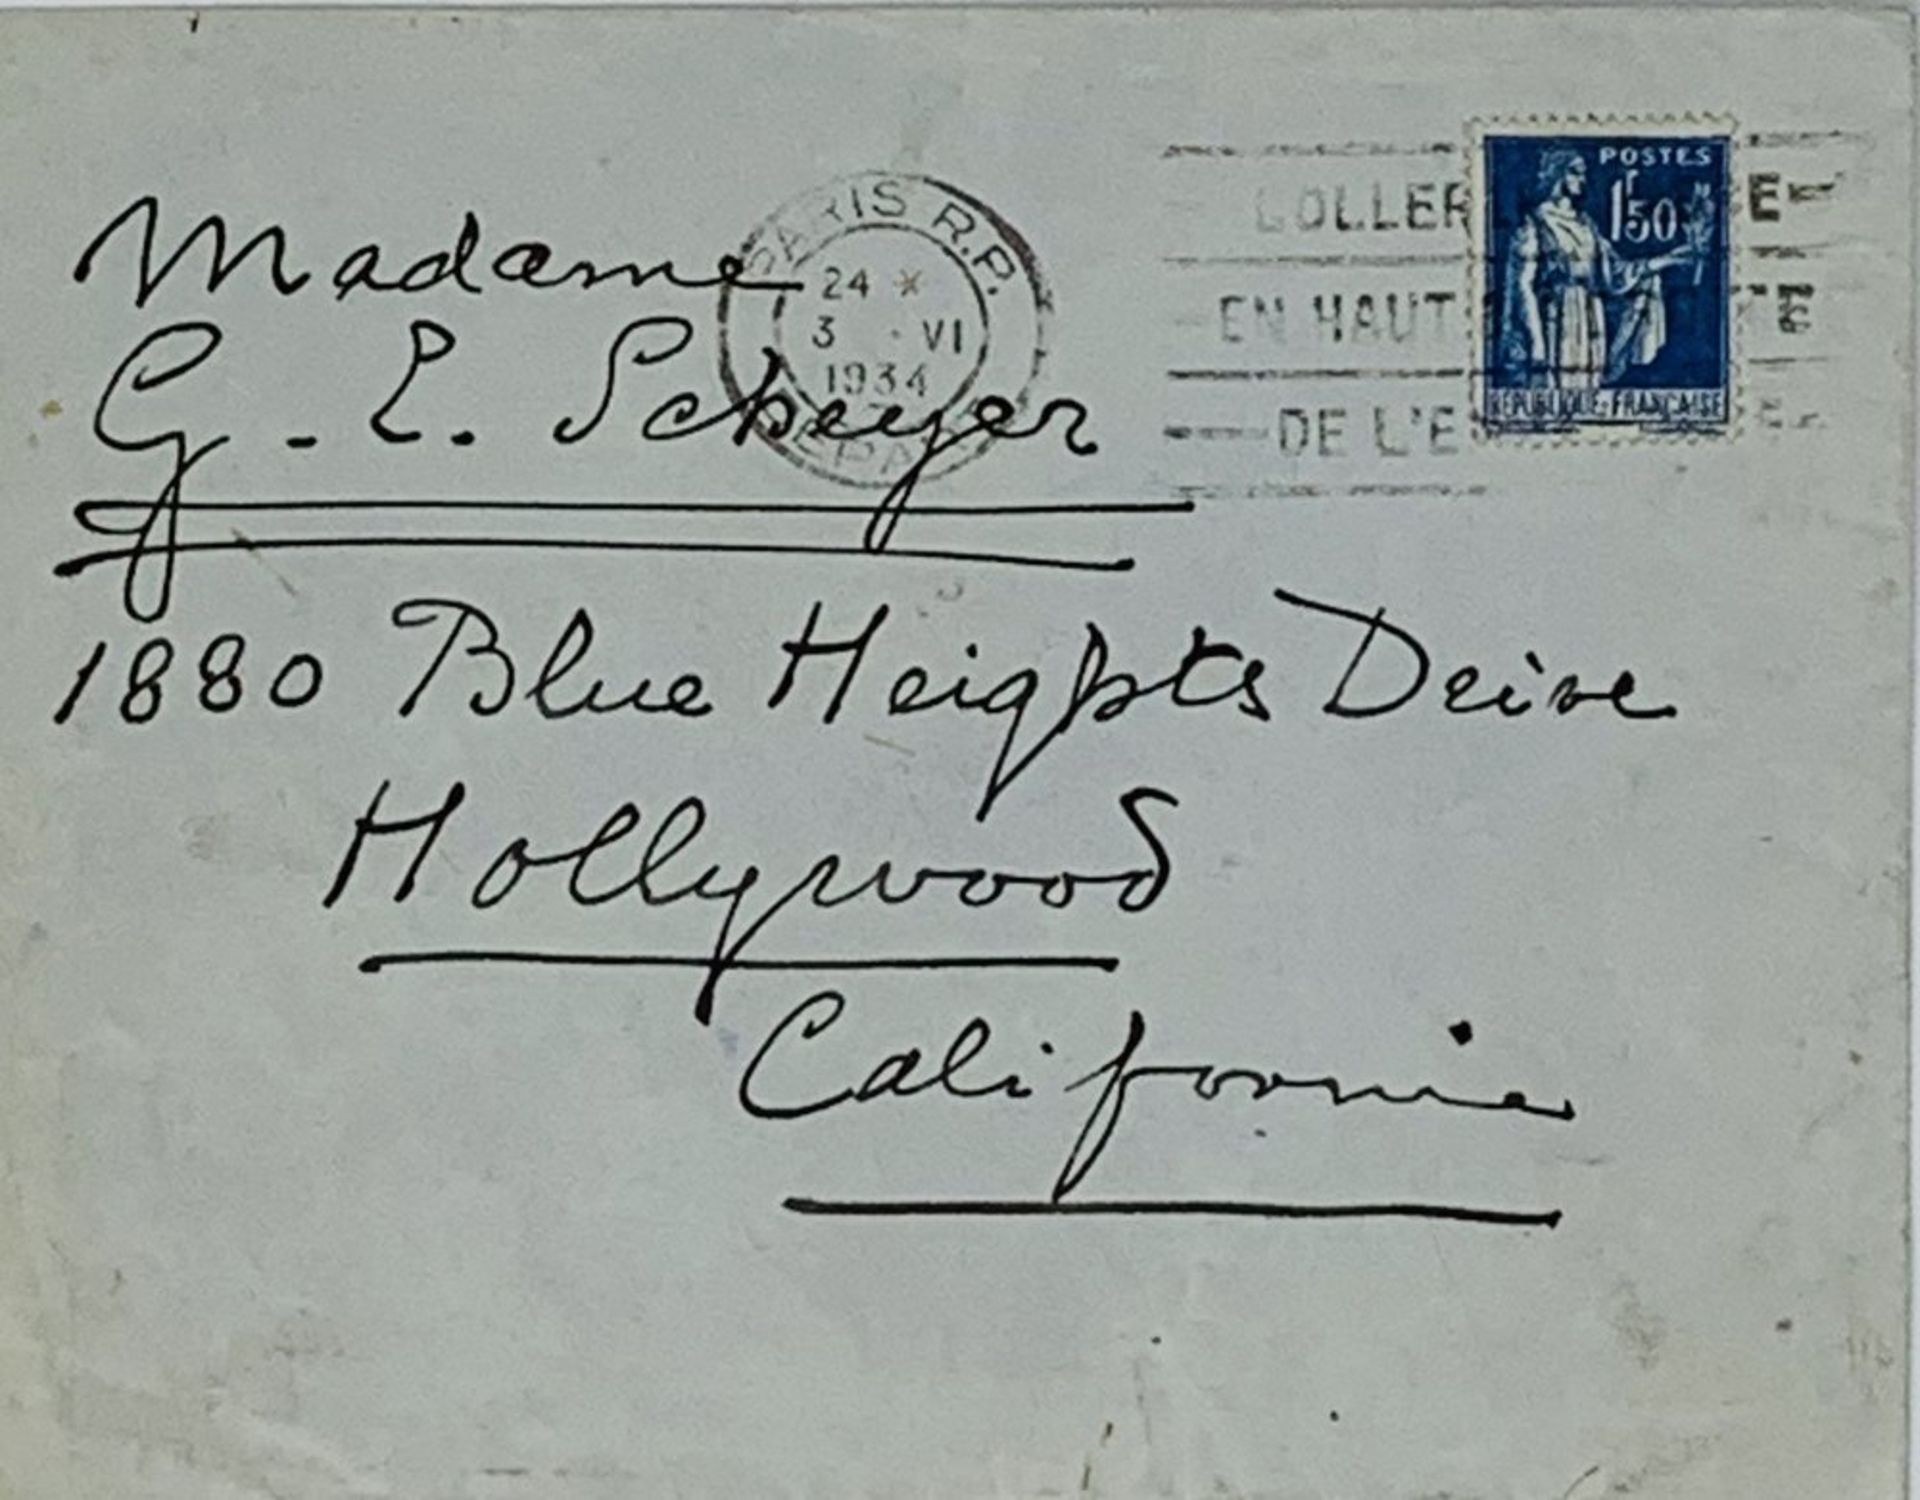 PARIS R.P.
24 *
3 · VI
1934
DEPART
COLLER
EN HAUT
DE L'E
POSTES
1F50
REPUBLIQUE·FRANÇAISE
Madame
G. E. Scheyer
1880 Blue Heights Drive
Hollywood
California